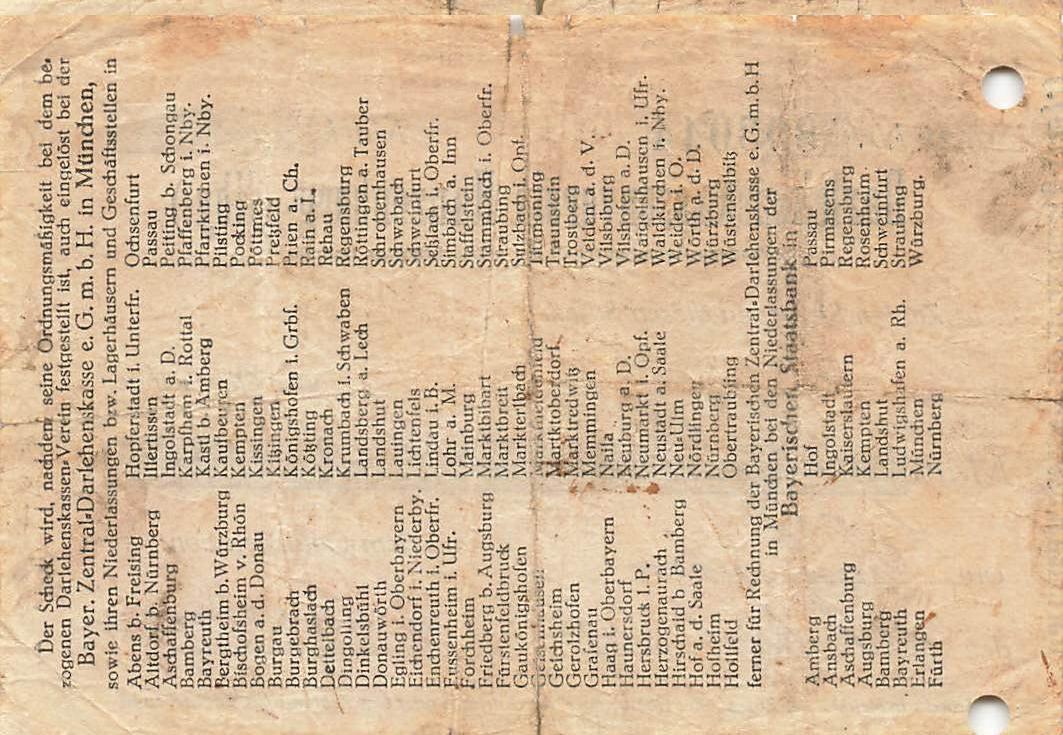 Der Scheck wird, nachdem seine Ordnungsmäßigkeit bei dem be-
zogenen Darlehenskassen-Verein festgestellt ist, auch eingelöst bei der
Bayer. Zentral-Darlehenskasse e. G. m. b. H. in München,
sowie ihren Niederlassungen bzw. Lagerhäusern und Geschäftsstellen in
Abens b. Freising
Altdorf b. Nürnberg
Aschaffenburg
Bamberg
Bayreuth
Bergtheim b. Würzburg
Bischofsheim v. Rhön
Bogen a. d. Donau
Burgau
Burgebrach
Burghaslach
Dettelbach
Dingolfing
Dinkelsbühl
Donauwörth
Egling i. Oberbayern
Eichendorf i. Niederby.
Enchenreuth i. Oberfr.
Eussenheim i. Ufr.
Forchheim
Friedberg b. Augsburg
Fürstenfeldbruck
Gaukönigshofen
Geichsheim
Gerolzhofen
Grafenau
Haag i. Oberbayern
Haunersdorf
Hersbruck l. P.
Herzogenaurach
Hirschaid b Bamberg
Hof a. d. Saale
Hofheim
Hollfeld
Hopferstadt i. Unterfr.
Illertissen
Ingolstadt a. D.
Karpfham i. Rottal
Kastl b. Amberg
Kaufbeuren
Kempten
Kissingen
Kitzingen
Königshofen i. Grbf.
Kötzting
Kronach
Krumbach i. Schwaben
Landsberg a. Lech
Landshut
Lauingen
Lichtenfels
Lindau i. B.
Lohr a. M.
Mainburg
Marktbibart
Marktbreit
Markterlbach
Marktoberdorf
Marktredwitz
Memmingen
Naila
Neuburg a. D.
Neumarkt i. Opf.
Neustadt a. Saale
Neu-Ulm
Nördlingen
Nürnberg
Obertraubling
Ochsenfurt
Passau
Peiting b. Schongau
Pfaffenberg i. Nby.
Pfarrkirchen i. Nby.
Pilsting
Pocking
Pöttmes
Preßfeld
Prien a. Ch.
Rain a. L.
Rehau
Regensburg
Röttingen a. Tauber
Schrobenhausen
Schwabach
Schweinfurt
Seßlach i. Oberfr.
Simbach a. Inn
Staffelstein
Stammbach i. Oberfr.
Straubing
Sulzbach i. Opf.
Tittmoning
Traunstein
Trostberg
Velden a. d. V.
Vilsbiburg
Vilshofen a. D.
Waigolshausen i. Ufr.
Waldkirchen i. Nby.
Weiden i. O.
Wörth a. d. D.
Würzburg
Wüstenselbitz
ferner für Rechnung der Bayerischen Zentral-Darlehenskasse e. G. m. b. H
in München bei den Niederlassungen der
Bayerischen Staatsbank in
Amberg
Ansbach
Aschaffenburg
Augsburg
Bamberg
Bayreuth
Erlangen
Fürth
Hof
Ingolstadt
Kaiserslautern
Kempten
Landshut
Ludwigshafen a. Rh.
München
Nürnberg
Passau
Pirmasens
Regensburg
Rosenheim
Schweinfurt
Straubing
Würzburg.